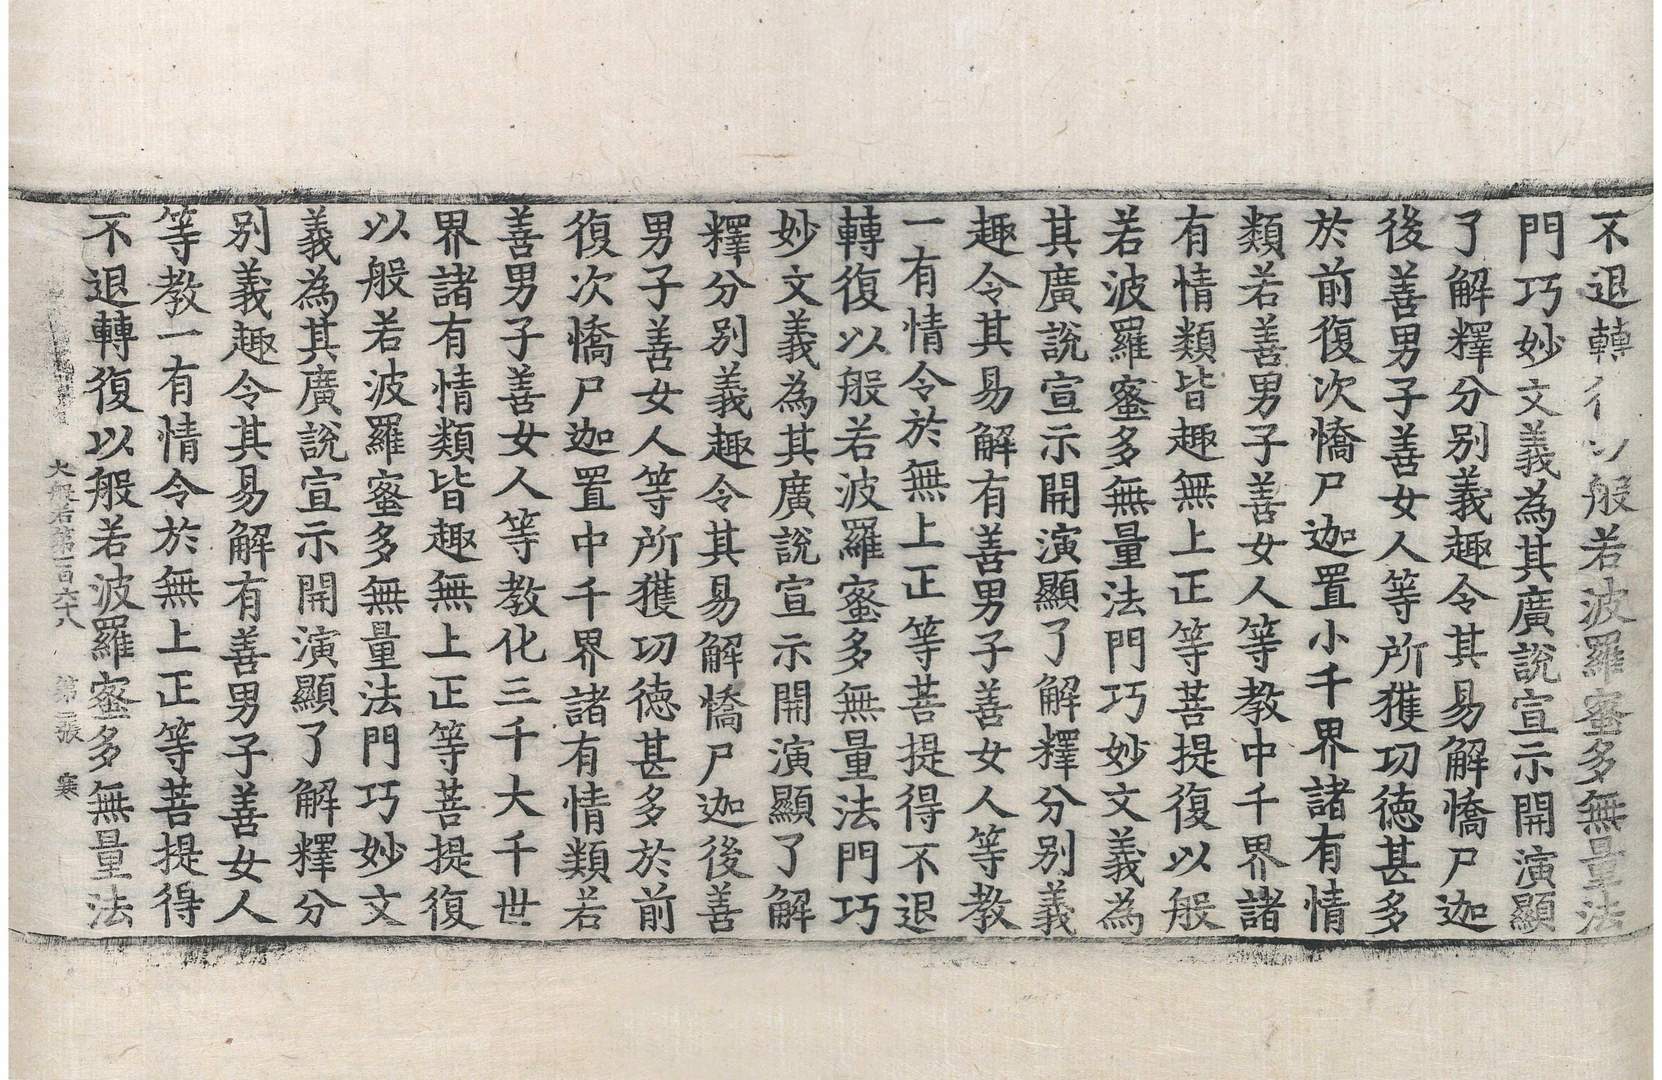 不退轉復以般若波羅蜜多無量法
門巧妙文義為其廣說宣示開演顯
了解釋分別義趣令其易解憍尸迦
後善男子善女人等所獲功德甚多
於前復次憍尸迦置小千界諸有情
類若善男子善女人等教中千界諸
有情類皆趣無上正等菩提復以般
若波羅蜜多無量法門巧妙文義為
其廣說宣示開演顯了解釋分別義
趣令其易解有善男子善女人等教
一有情令於無上正等菩提得不退
轉復以般若波羅蜜多無量法門巧
妙文義為其廣說宣示開演顯了解
釋分別義趣令其易解憍尸迦後善
男子善女人等所獲功德甚多於前
復次憍尸迦置中千界諸有情類若
善男子善女人等教化三千大千世
界諸有情類皆趣無上正等菩提復
以般若波羅蜜多無量法門巧妙文
義為其廣說宣示開演顯了解釋分
別義趣令其易解有善男子善女人
等教一有情令於無上正等菩提得
不退轉復以般若波羅蜜多無量法
大般若第一百六十八 第二張 寒